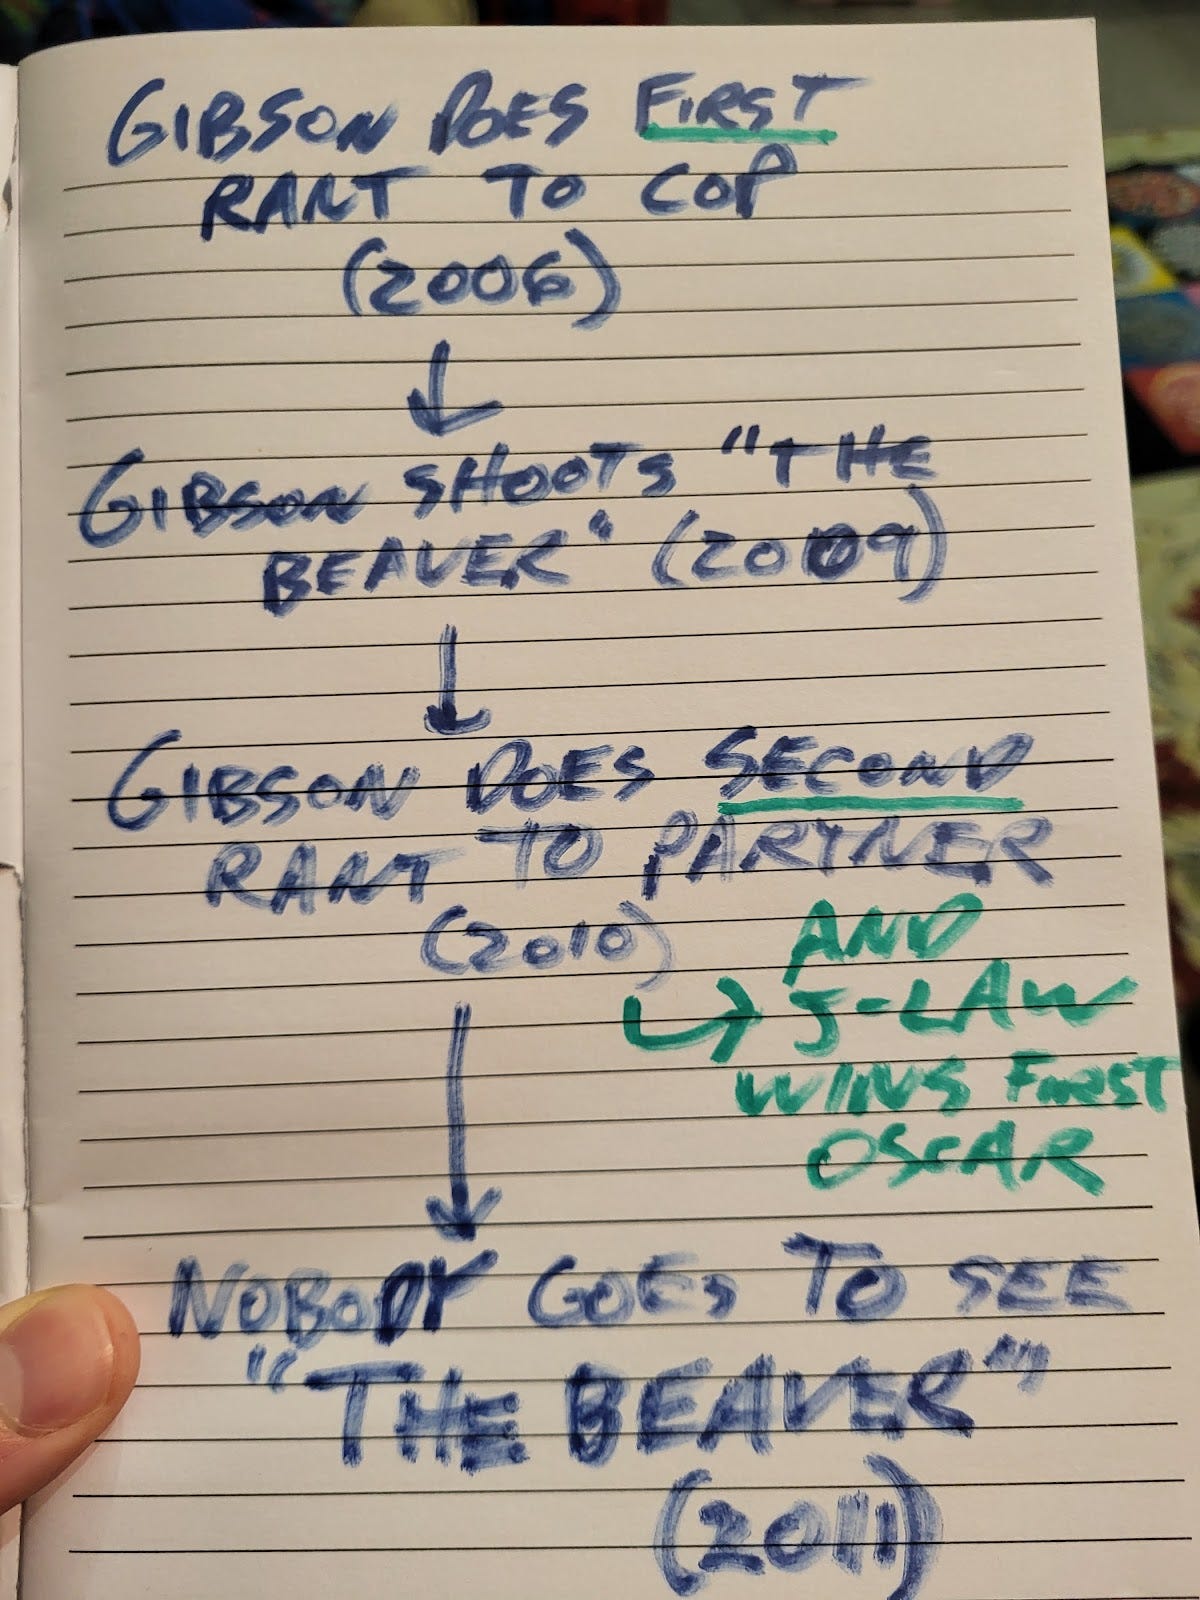 GIBSON DOES FIRST
RANT TO COP
(2006)
GIBSON SHOOTS "THE
BEAVER" (2009)
GIBSON DOES SECOND
RANT TO PARTNER
(2010)
AND
J-LAW
WINS FIRST
OSCAR
NOBODY GOES TO SEE
"THE BEAVER"
(2011)